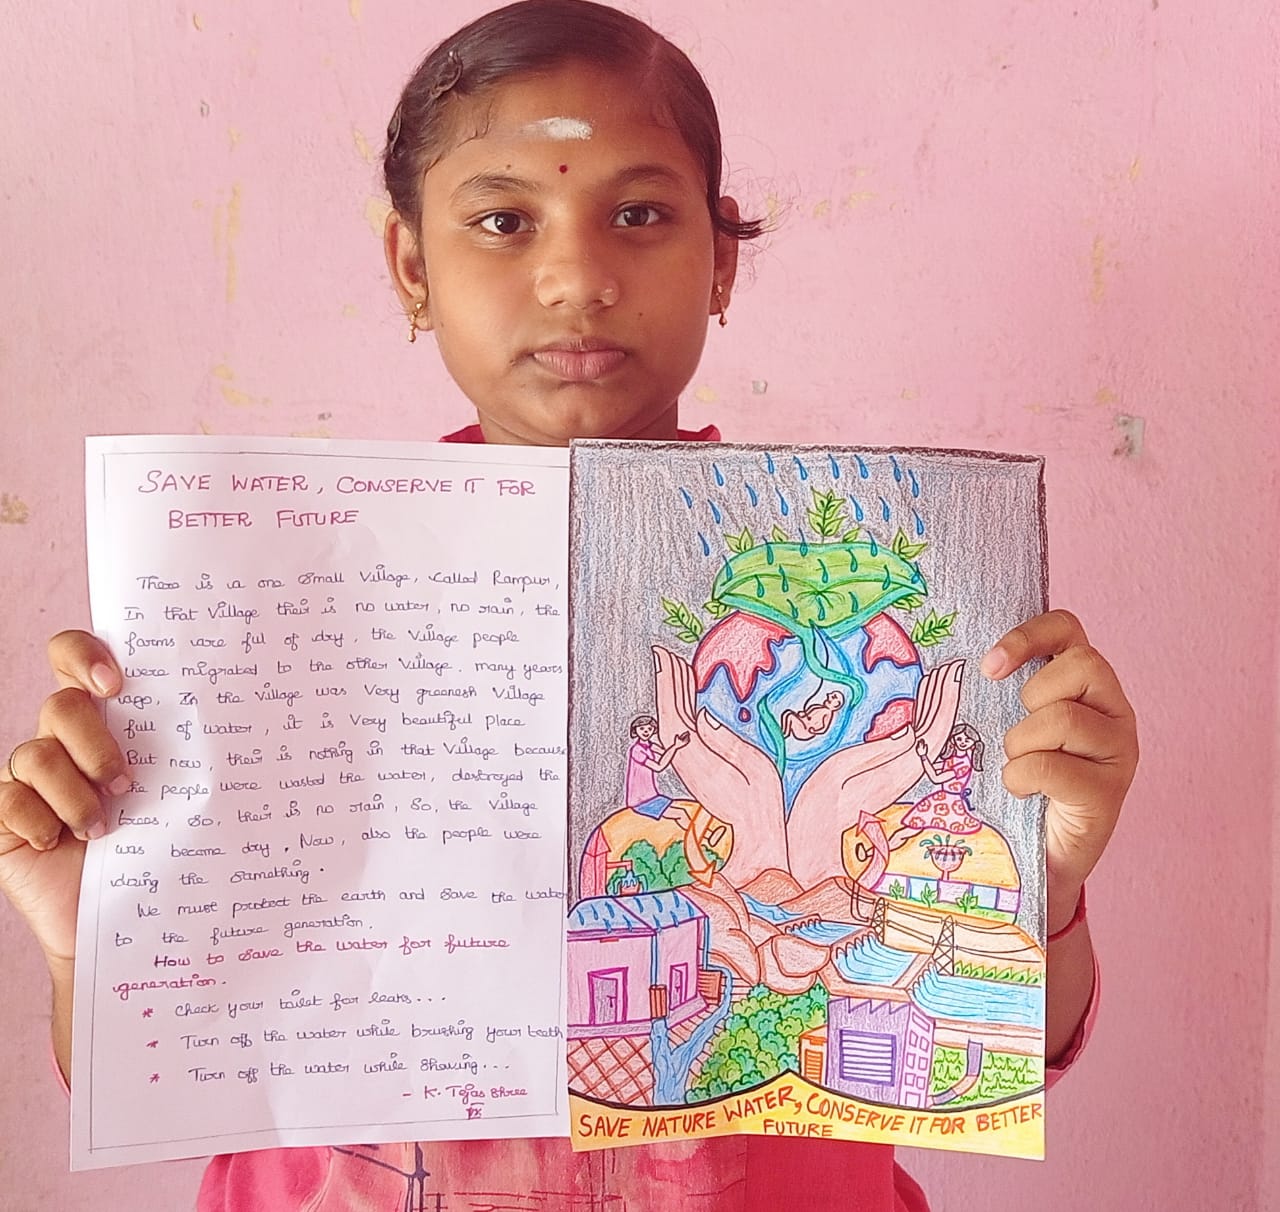 SAVE WATER, CONSERVE IT FOR
BETTER FUTURE
There is a one small Village, called Rampur,
In that Village their is no water, no rain, the
farms are ful of dry, the Village people
were migrated to the other Village. many years
ago, In the Village was Very greenesh Village
full of water, it is Very beautiful place
But now, their is nothing in that Village because
the people were wasted the water, destroyed the
trees, So, their is no rain, So, the Village
was become dry. Now, also the people were
doing the samething.
We must protect the earth and save the water
to the future generation.
How to save the water for future
generation.
* Check your toilet for leaks...
* Turn off the water while brushing your teeth
* Turn off the water while Shaving...
- K. Tejas Shree
SAVE NATURE WATER, CONSERVE IT FOR BETTER
FUTURE